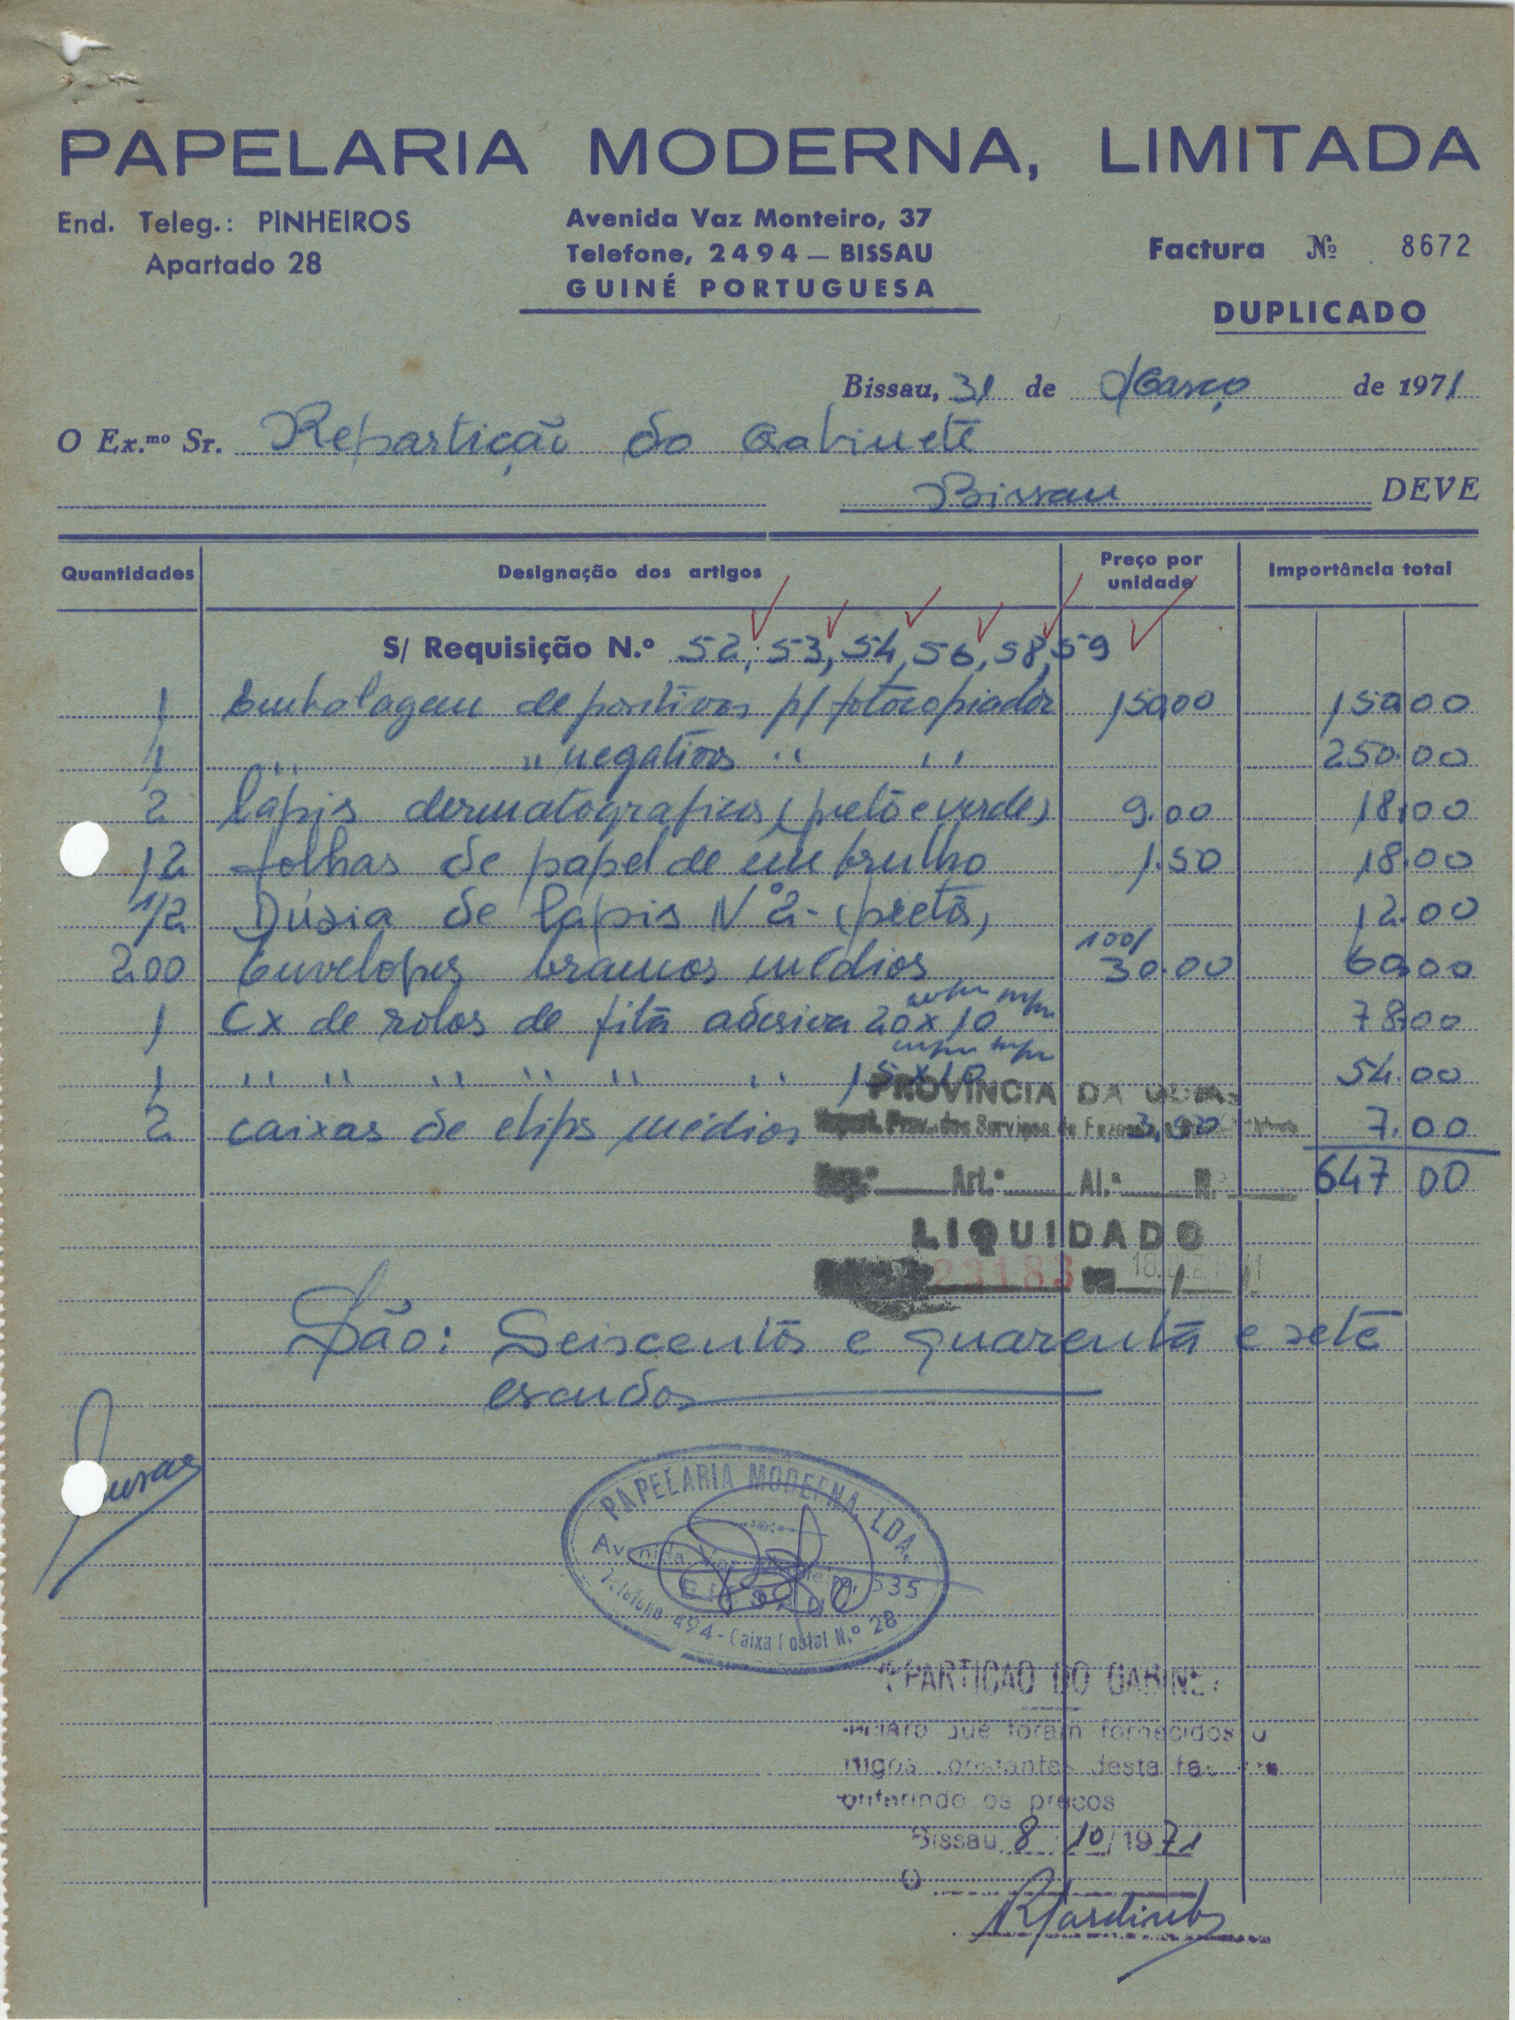 PAPELARIA MODERNA, LIMITADA
End. Teleg.: PINHEIROS
Apartado 28
Avenida Vaz Monteiro, 37
Telefone, 2494 — BISSAU
GUINÉ PORTUGUESA
Factura Nº 8672
DUPLICADO
Bissau, 31 de Março de 1971
O Ex.mo Sr. Repartição do Gabinete
Bissau DEVE
Quantidades Designação dos artigos Preço por unidade Importância total
S/ Requisição N.º 52, 53, 54, 56, 58, 59
1 Embalagem de positivos p/ fotocopiador 150,00 150,00
1 " " negativos " " 250.00
2 lapis dermatograficos (preto e verde) 9.00 18.00
12 folhas de papel de embrulho 1.50 18.00
1/2 Dúzia de lapis Nº 2 - (pretos) 12.00
200 Envelopes brancos médios 100/ 30.00 60.00
1 Cx de rolos de fita adesiva 20 x 10 78.00
1 " " " " " " 15 x 10 54.00
2 caixas de clips médios 3,50 7.00
647 00
PROVÍNCIA DA
Prov. dos Serviços de
Art.º Al.ª N.
LIQUIDADO
23183
São: Seiscentos e quarenta e sete
escudos
PAPELARIA MODERNA, LDA.
Avenida 535
Telefone 494 - Caixa Postal N.º 28
REPARTIÇÃO DO GABINETE
que foram fornecidos
constantes desta
os preços
Bissau 8 / 10 / 1971
O